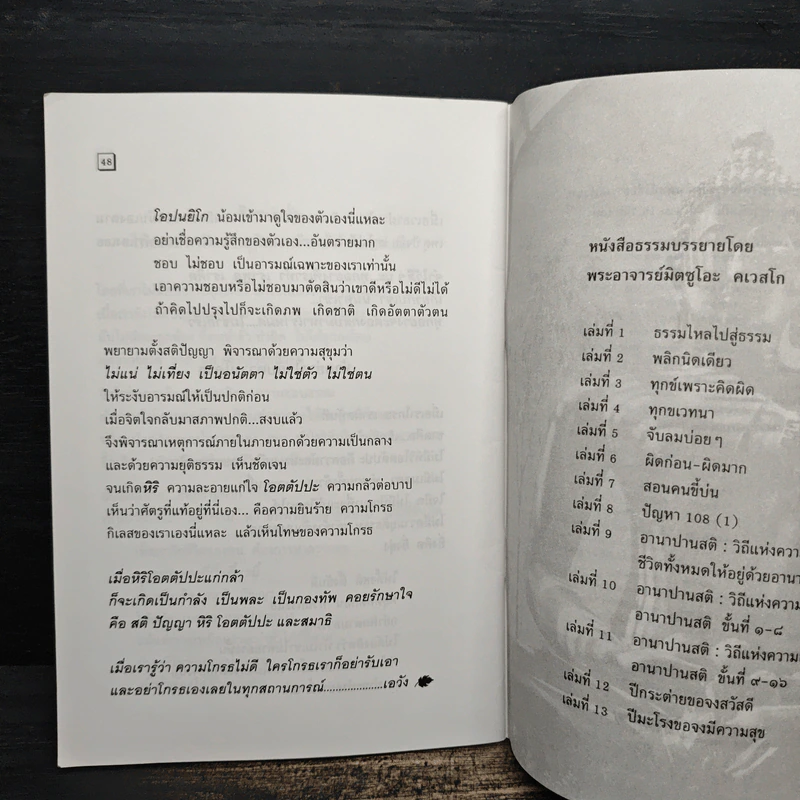 48
โอปนยิโก น้อมเข้ามาดูใจของตัวเองนี่แหละ
อย่าเชื่อความรู้สึกของตัวเอง...อันตรายมาก
ชอบ ไม่ชอบ เป็นอารมณ์เฉพาะของเราเท่านั้น
เอาความชอบหรือไม่ชอบมาตัดสินว่าเขาดีหรือไม่ดีไม่ได้
ถ้าคิดไปปรุงไปก็จะเกิดภพ เกิดชาติ เกิดอัตตาตัวตน
พยายามตั้งสติปัญญา พิจารณาด้วยความสุขุมว่า
ไม่แน่ ไม่เที่ยง เป็นอนัตตา ไม่ใช่ตัว ไม่ใช่ตน
ให้ระงับอารมณ์ให้เป็นปกติก่อน
เมื่อจิตใจกลับมาสภาพปกติ...สงบแล้ว
จึงพิจารณาเหตุการณ์ภายในภายนอกด้วยความเป็นกลาง
และด้วยความยุติธรรม เห็นชัดเจน
จนเกิดหิริ ความละอายแก่ใจ โอตตัปปะ ความกลัวต่อบาป
เห็นว่าศัตรูที่แท้อยู่ที่นี่เอง... คือความยินร้าย ความโกรธ
กิเลสของเราเองนี่แหละ แล้วเห็นโทษของความโกรธ
เมื่อหิริโอตตัปปะแก่กล้า
ก็จะเกิดเป็นกำลัง เป็นพละ เป็นกองทัพ คอยรักษาใจ
คือ สติ ปัญญา หิริ โอตตัปปะ และสมาธิ
เมื่อเรารู้ว่า ความโกรธไม่ดี ใครโกรธเราก็อย่ารับเอา
และอย่าโกรธเองเลยในทุกสถานการณ์....................เอวัง
หนังสือธรรมบรรยายโดย
พระอาจารย์มิตซูโอะ คเวสโก
เล่มที่ 1 ธรรมไหลไปสู่ธรรม
เล่มที่ 2 พลิกนิดเดียว
เล่มที่ 3 ทุกข์เพราะคิดผิด
เล่มที่ 4 ทุกขเวทนา
เล่มที่ 5 จับลมบ่อยๆ
เล่มที่ 6 ผิดก่อน-ผิดมาก
เล่มที่ 7 สอนคนขี้บ่น
เล่มที่ 8 ปัญหา 108 (1)
เล่มที่ 9 อานาปานสติ : วิถีแห่งความ
ชีวิตทั้งหมดให้อยู่ด้วยอานา
เล่มที่ 10 อานาปานสติ : วิถีแห่งความ
อานาปานสติ ขั้นที่ ๑-๘
เล่มที่ 11 อานาปานสติ : วิถีแห่งความ
อานาปานสติ ขั้นที่ ๙-๑๖
เล่มที่ 12 ปีกระต่ายขอจงสวัสดี
เล่มที่ 13 ปีมะโรงขอจงมีความสุข